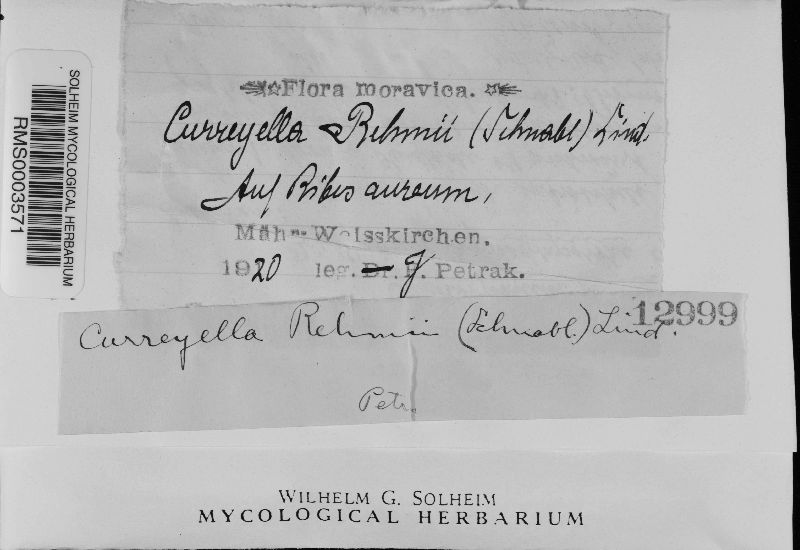 SOLHEIM MYCOLOGICAL HERBARIUM
RMS0003571
Flora moravica.
Curreyella Rehmii (Schnabl.) Lind.
Auf Ribes aureum,
Mähr. Weisskirchen.
1920 leg. Dr. F. Petrak.
12999
Curreyella Rehmii (Schnabl.) Lind.
Petr.
WILHELM G. SOLHEIM
MYCOLOGICAL HERBARIUM